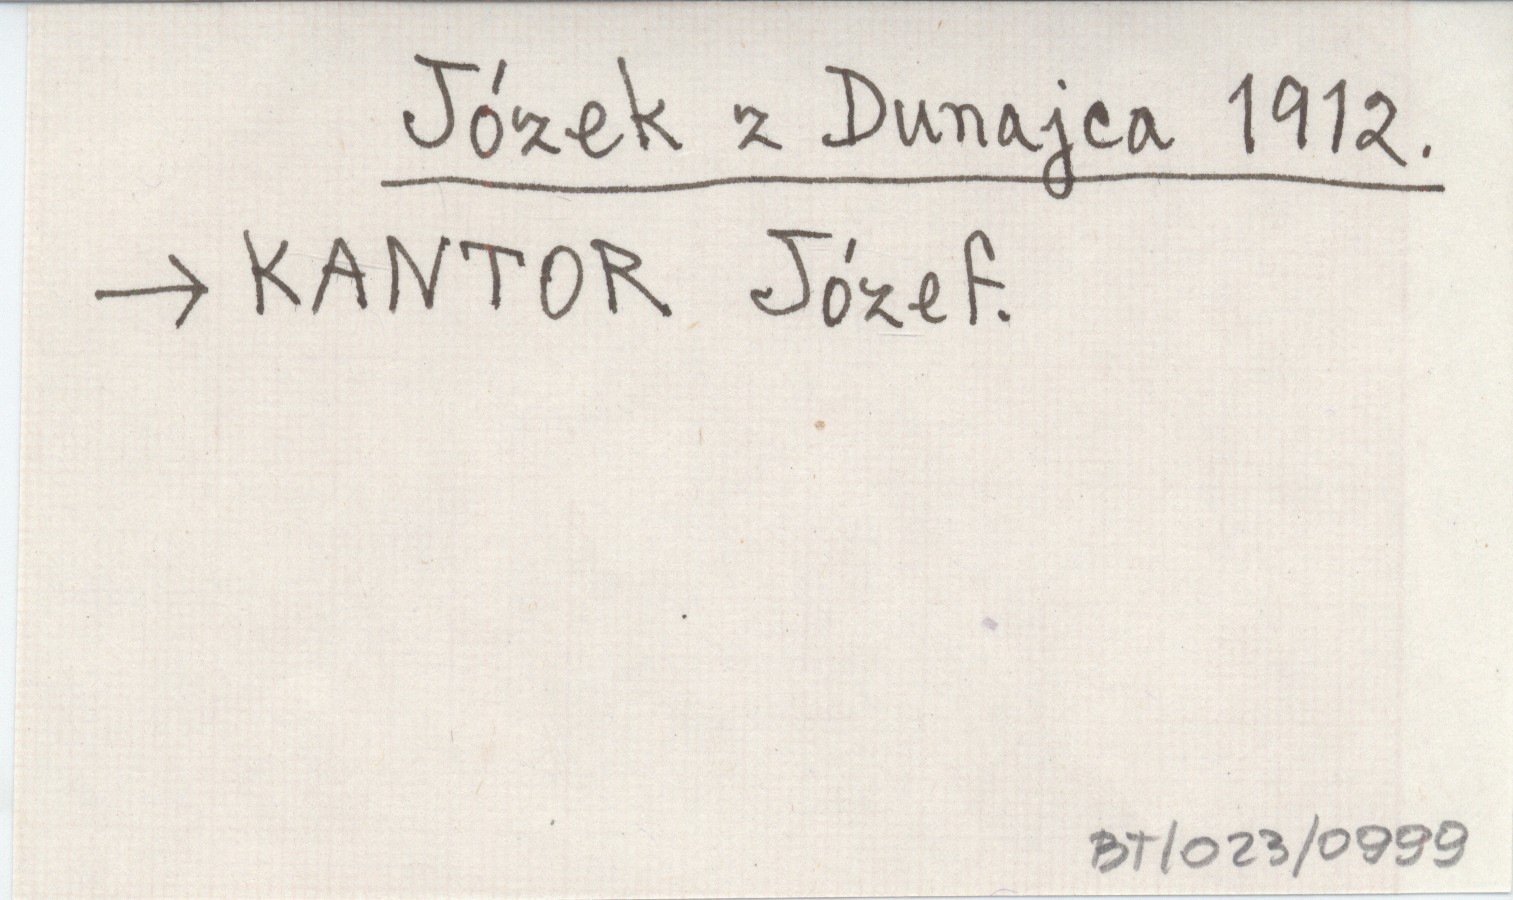 Józek z Dunajca 1912.
→ KANTOR Józef.
BT/023/0999